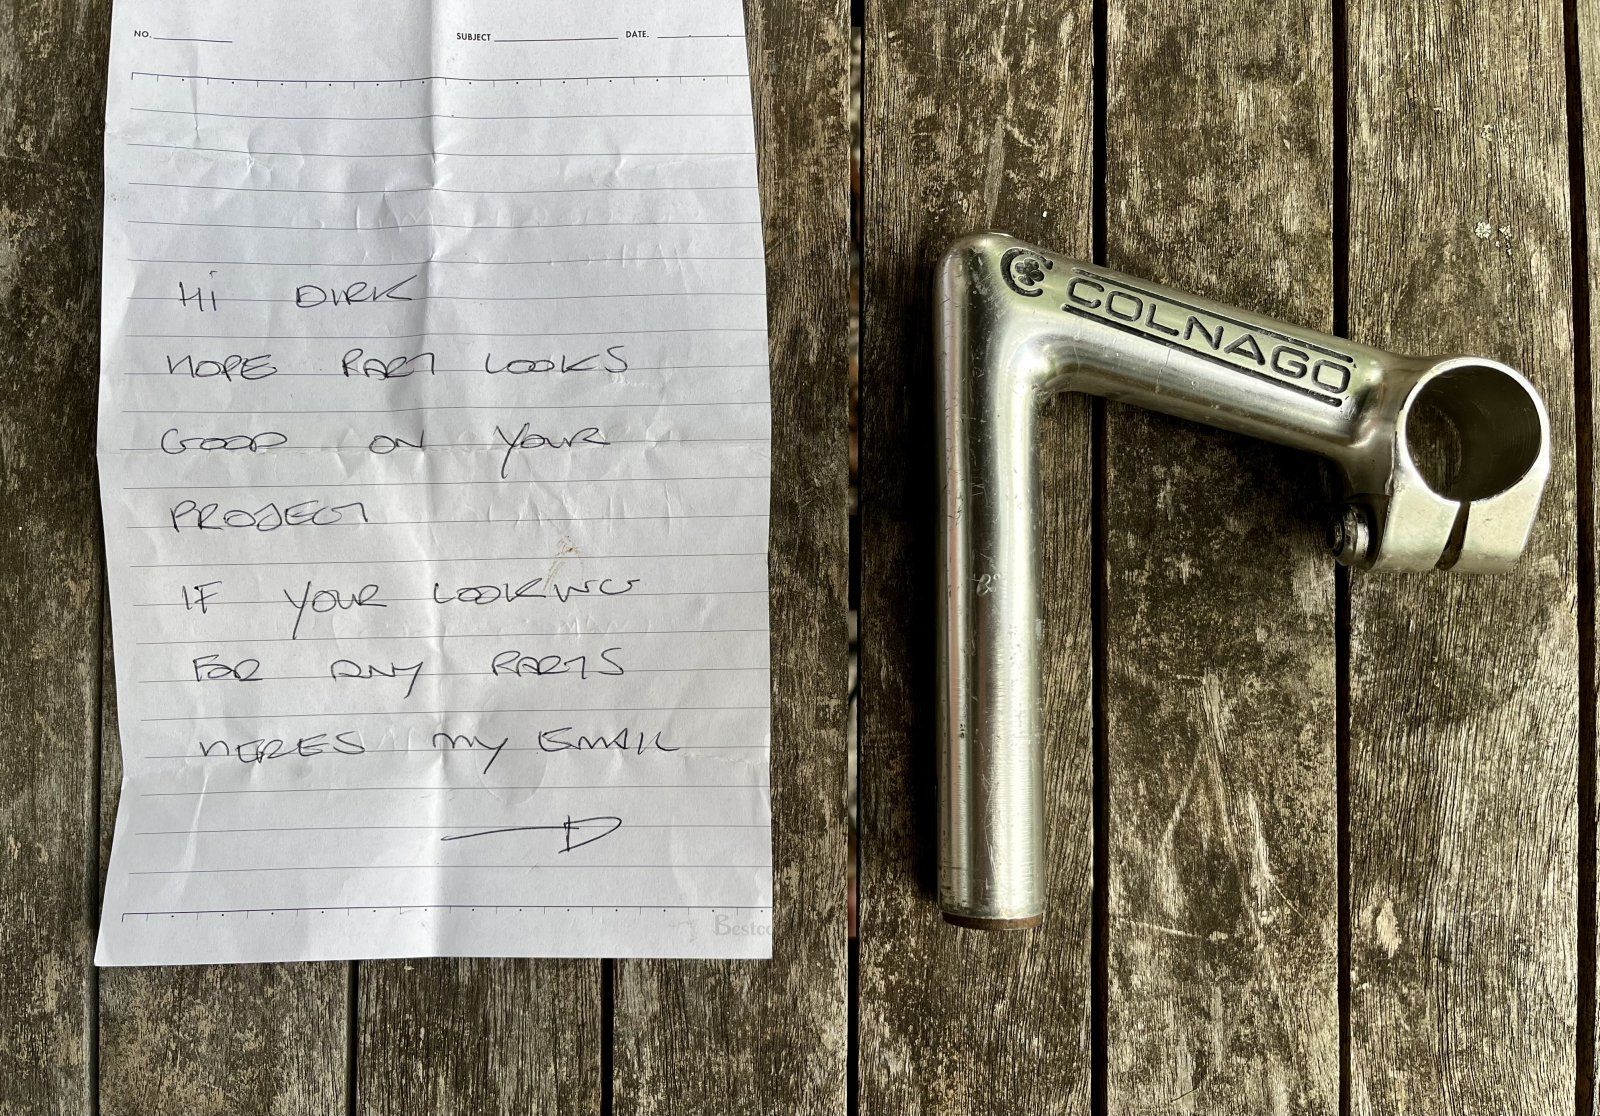 NO.
SUBJECT
DATE.
HI DIRK
HOPE PART LOOKS
GOOD ON YOUR
PROJECT
IF YOUR LOOKING
FOR ANY PARTS
HERES MY EMAIL
COLNAGO